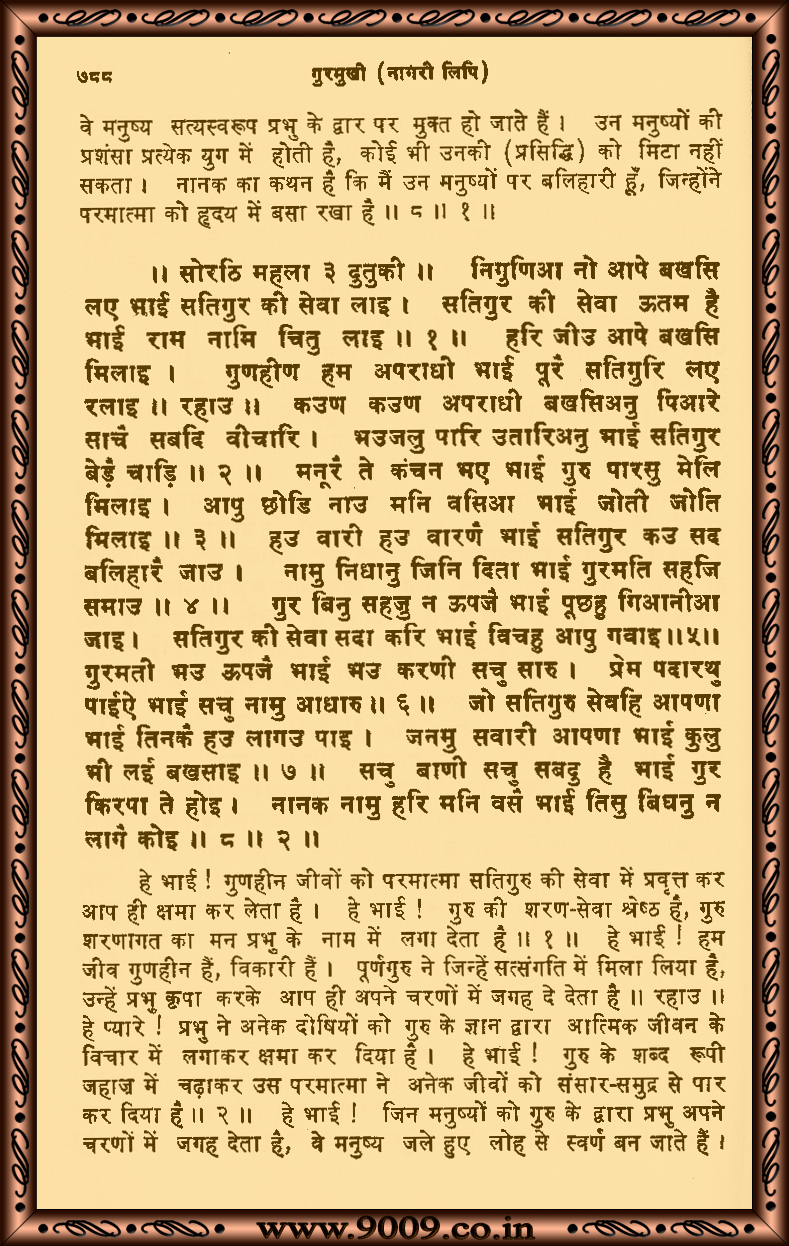 ७८८ गुरमुखी (नागरी लिपि)
वे मनुष्य सत्यस्वरूप प्रभु के द्वार पर मुक्त हो जाते हैं । उन मनुष्यों की
प्रशंसा प्रत्येक युग में होती है, कोई भी उनकी (प्रसिद्धि) को मिटा नहीं
सकता । नानक का कथन है कि मैं उन मनुष्यों पर बलिहारी हूँ, जिन्होंने
परमात्मा को हृदय में बसा रखा है ॥ ८ ॥ १ ॥
॥ सोरठि महला ३ दुतुकी ॥ निगुणिआ नो आपे बखसि
लए भाई सतिगुर की सेवा लाइ । सतिगुर की सेवा ऊतम है
भाई राम नामि चितु लाइ ॥ १ ॥ हरि जीउ आपे बखसि
मिलाइ । गुणहीण हम अपराधी भाई पूरै सतिगुरि लए
रलाइ ॥ रहाउ ॥ कउण कउण अपराधी बखसिअनु पिआरे
साचै सबदि वीचारि । भउजलु पारि उतारिअनु भाई सतिगुर
बेड़ै चाड़ि ॥ २ ॥ मनूरै ते कंचन भए भाई गुरु पारसु मेलि
मिलाइ । आपु छोडि नाउ मनि वसिआ भाई जोती जोति
मिलाइ ॥ ३ ॥ हउ वारी हउ वारणै भाई सतिगुर कउ सद
बलिहारै जाउ । नामु निधानु जिनि दिता भाई गुरमति सहजि
समाउ ॥ ४ ॥ गुर बिनु सहजु न ऊपजै भाई पूछहु गिआनीआ
जाइ । सतिगुर की सेवा सदा करि भाई विचहु आपु गवाइ ॥५॥
गुरमती भउ ऊपजै भाई भउ करणी सचु सारु । प्रेम पदारथु
पाईऐ भाई सचु नामु आधारु ॥ ६ ॥ जो सतिगुरु सेवहि आपणा
भाई तिनकै हउ लागउ पाइ । जनमु सवारी आपणा भाई कुलु
भी लई बखसाइ ॥ ७ ॥ सचु बाणी सचु सबदु है भाई गुर
किरपा ते होइ । नानक नामु हरि मनि वसै भाई तिसु बिघनु न
लागै कोइ ॥ ८ ॥ २ ॥
हे भाई ! गुणहीन जीवों को परमात्मा सतिगुरु की सेवा में प्रवृत्त कर
आप ही क्षमा कर लेता है । हे भाई ! गुरु की शरण-सेवा श्रेष्ठ है, गुरु
शरणागत का मन प्रभु के नाम में लगा देता है ॥ १ ॥ हे भाई ! हम
जीव गुणहीन हैं, विकारी हैं । पूर्णगुरु ने जिन्हें सत्संगति में मिला लिया है,
उन्हें प्रभु कृपा करके आप ही अपने चरणों में जगह दे देता है ॥ रहाउ ॥
हे प्यारे ! प्रभु ने अनेक दोषियों को गुरु के ज्ञान द्वारा आत्मिक जीवन के
विचार में लगाकर क्षमा कर दिया है । हे भाई ! गुरु के शब्द रूपी
जहाज़ में चढ़ाकर उस परमात्मा ने अनेक जीवों को संसार-समुद्र से पार
कर दिया है ॥ २ ॥ हे भाई ! जिन मनुष्यों को गुरु के द्वारा प्रभु अपने
चरणों में जगह देता है, वे मनुष्य जले हुए लोह से स्वर्ण बन जाते हैं ।
www.9009.co.in